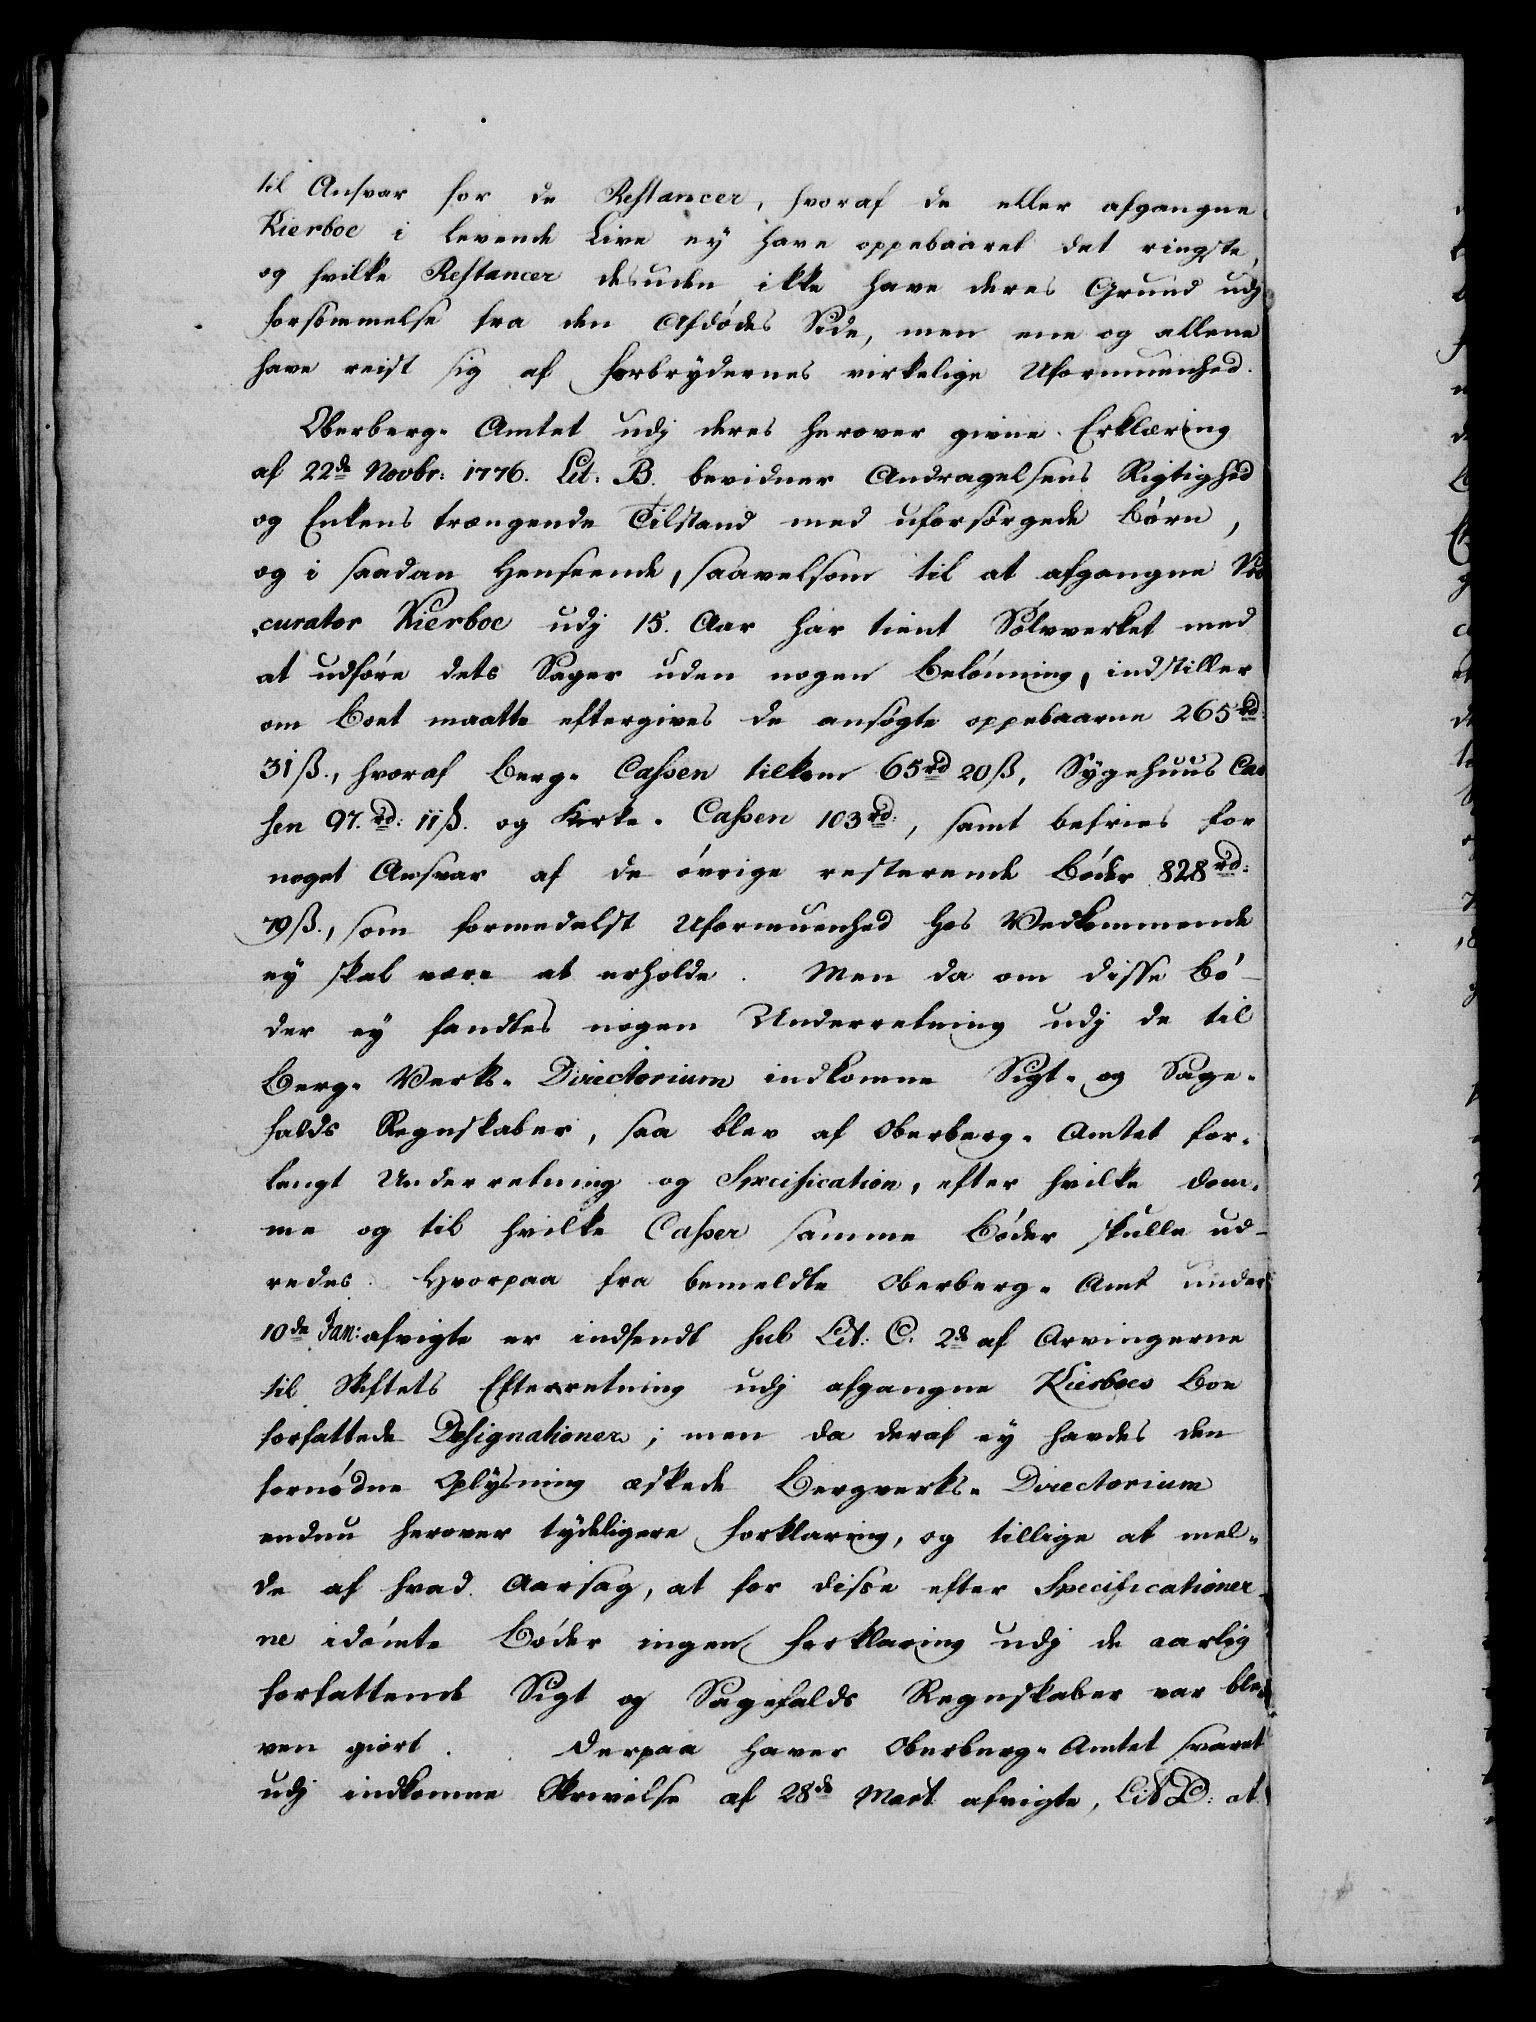 til Ansvar for de Restancer, hvoraf de eller afgangne
Kierboe i levende Live ey have oppebaaret det ringste,
og hvilke Restancer desuden ikke have deres Grund udj
forsömmelse fra den Afdödes Side, men ene og allene
have reist sig af forbrydernes virkelige Uformuenhed.
Oberberg- Amtet udj deres herover givne Erklæring
af 22de Novbr: 1776. Lit: B. bevidner Andragelsens Rigtighed
og Enkens trængende Tilstand med uforsörgede Börn,
og i saadan Henseende, saavelsom til at afgangne Pro
curator Kierboe udj 15. Aar har tient Sölvverket med
at udföre dets Sager uden nogen Belönning, indstiller
om Boet maatte eftergives de ansögte oppebaarne 265 rd:
31 ß., hvoraf Berg- Cassen tilkom 65 rd 20 ß, Sygehuus Cas
sen 97. rd: 11 ß. og Kirke- Cassen 103 rd:, samt befries for
noget Ansvar af de övrige resterende Böder 828 rd:
79 ß., som formedelst Uformuenhed hos Vedkommende
ey skal være at erholde. Men da om disse Bö-
der ey fandtes nogen Underretning udj de til
Berg- Verks- Directorium indkomne Sigt- og Sage-
falds Regnskaber, saa blev af Oberberg- Amtet for-
langt Underretning og Specification, efter hvilke Dom-
me og til hvilke Casser samme Böder skulle ud-
redes. Hvorpaa fra bemeldte Oberberg- Amt under
10de Jan: afvigte er indsendt sub Lit: C. 2de af Arvingerne
til Skiftets Efterretning udj afgangne Kierboes Boe
forfattede Designationer; men da deraf ey havdes den
fornödne Oplysning æskede Bergverks- Directorium
endnu herover tydeligere forklaring, og tillige at mel-
de af hvad Aarsag, at for disse efter Specificationer-
ne idömte Böder ingen forklaring udj de aarlig
forfattende Sigt og Sagefalds Regnskaber var ble-
ven giort. Derpaa haver Oberberg- Amtet svaret
udj indkomne Skrivelse af 28de Mart: afvigte, Lit D: at